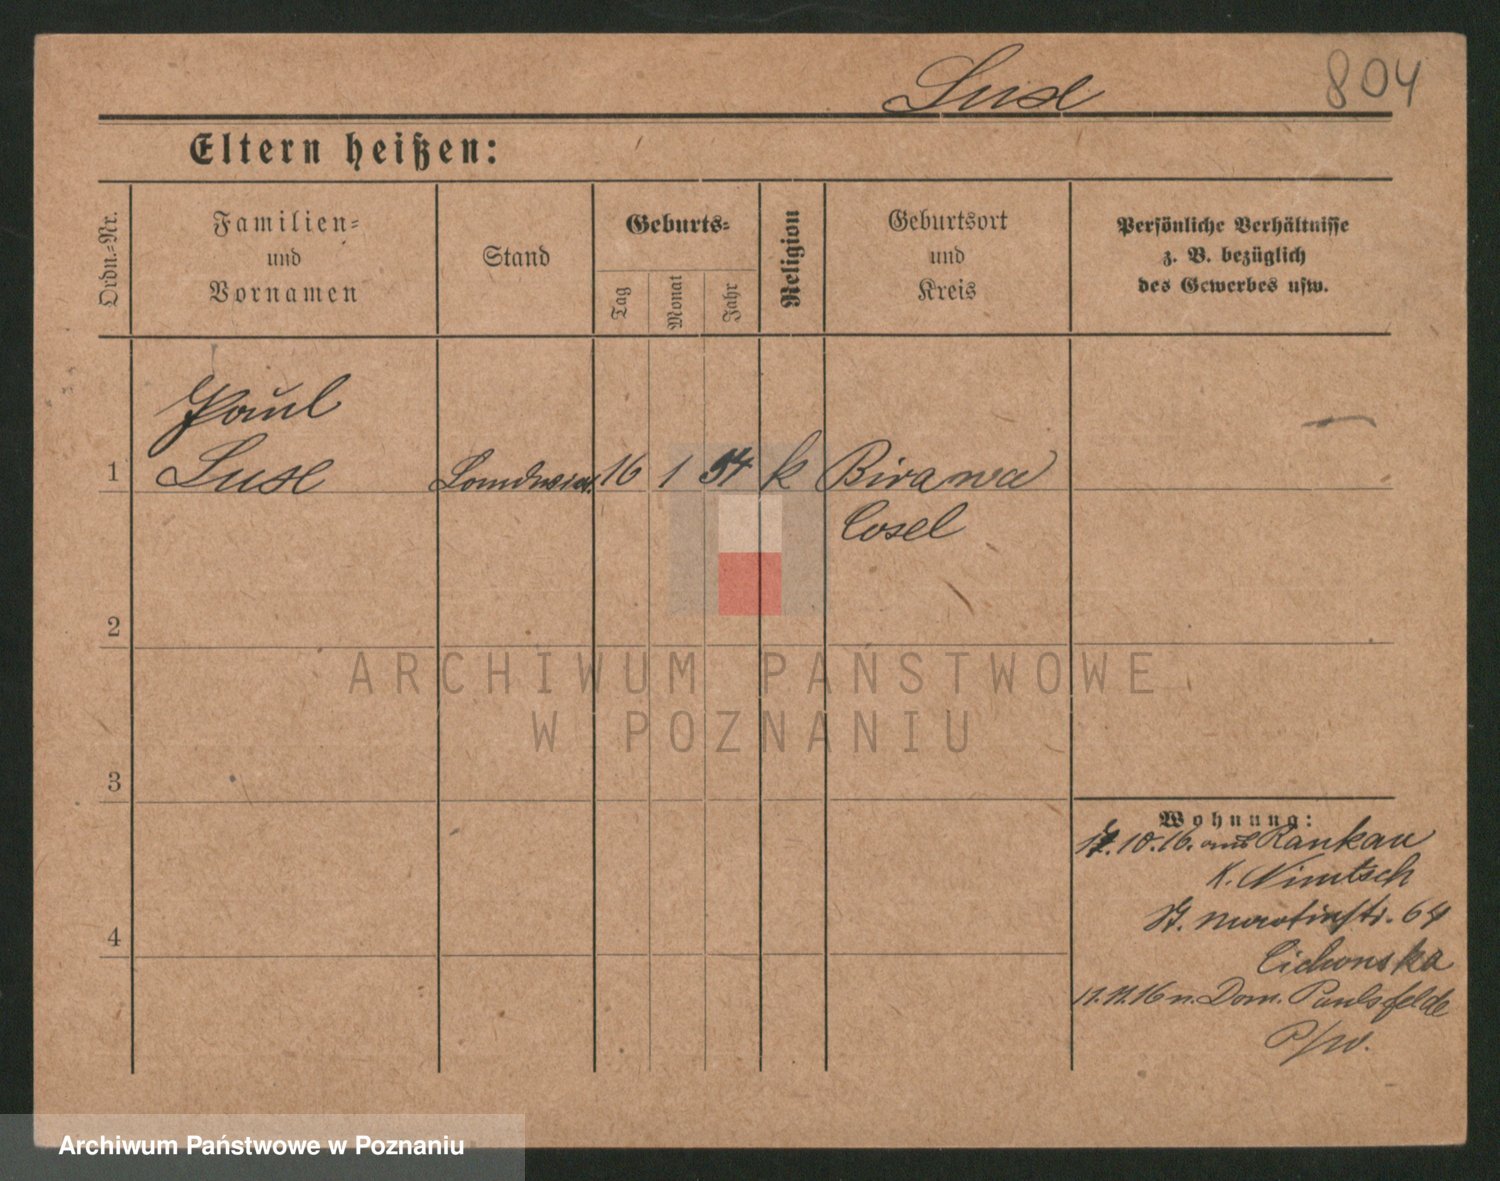 Lux 804
Eltern heißen:
Ordn.-Nr.
Familien-
und
Vornamen
Stand
Geburts-
Tag
Monat
Jahr
Religion
Geburtsort
und
Kreis
Persönliche Verhältnisse
z. B. bezüglich
des Gewerbes usw.
Paul
1 Lux Landwirt. 16 1 54 k Birawa
Cosel
2
3
4
Wohnung:
17.10.16. aus Rankau
K. Nimtsch
St. Martinstr. 64
Cichonska
11.11.16 n. Dom. Paulsfelde
ARCHIWUM PAŃSTWOWE
W POZNANIU
Archiwum Państwowe w Poznaniu